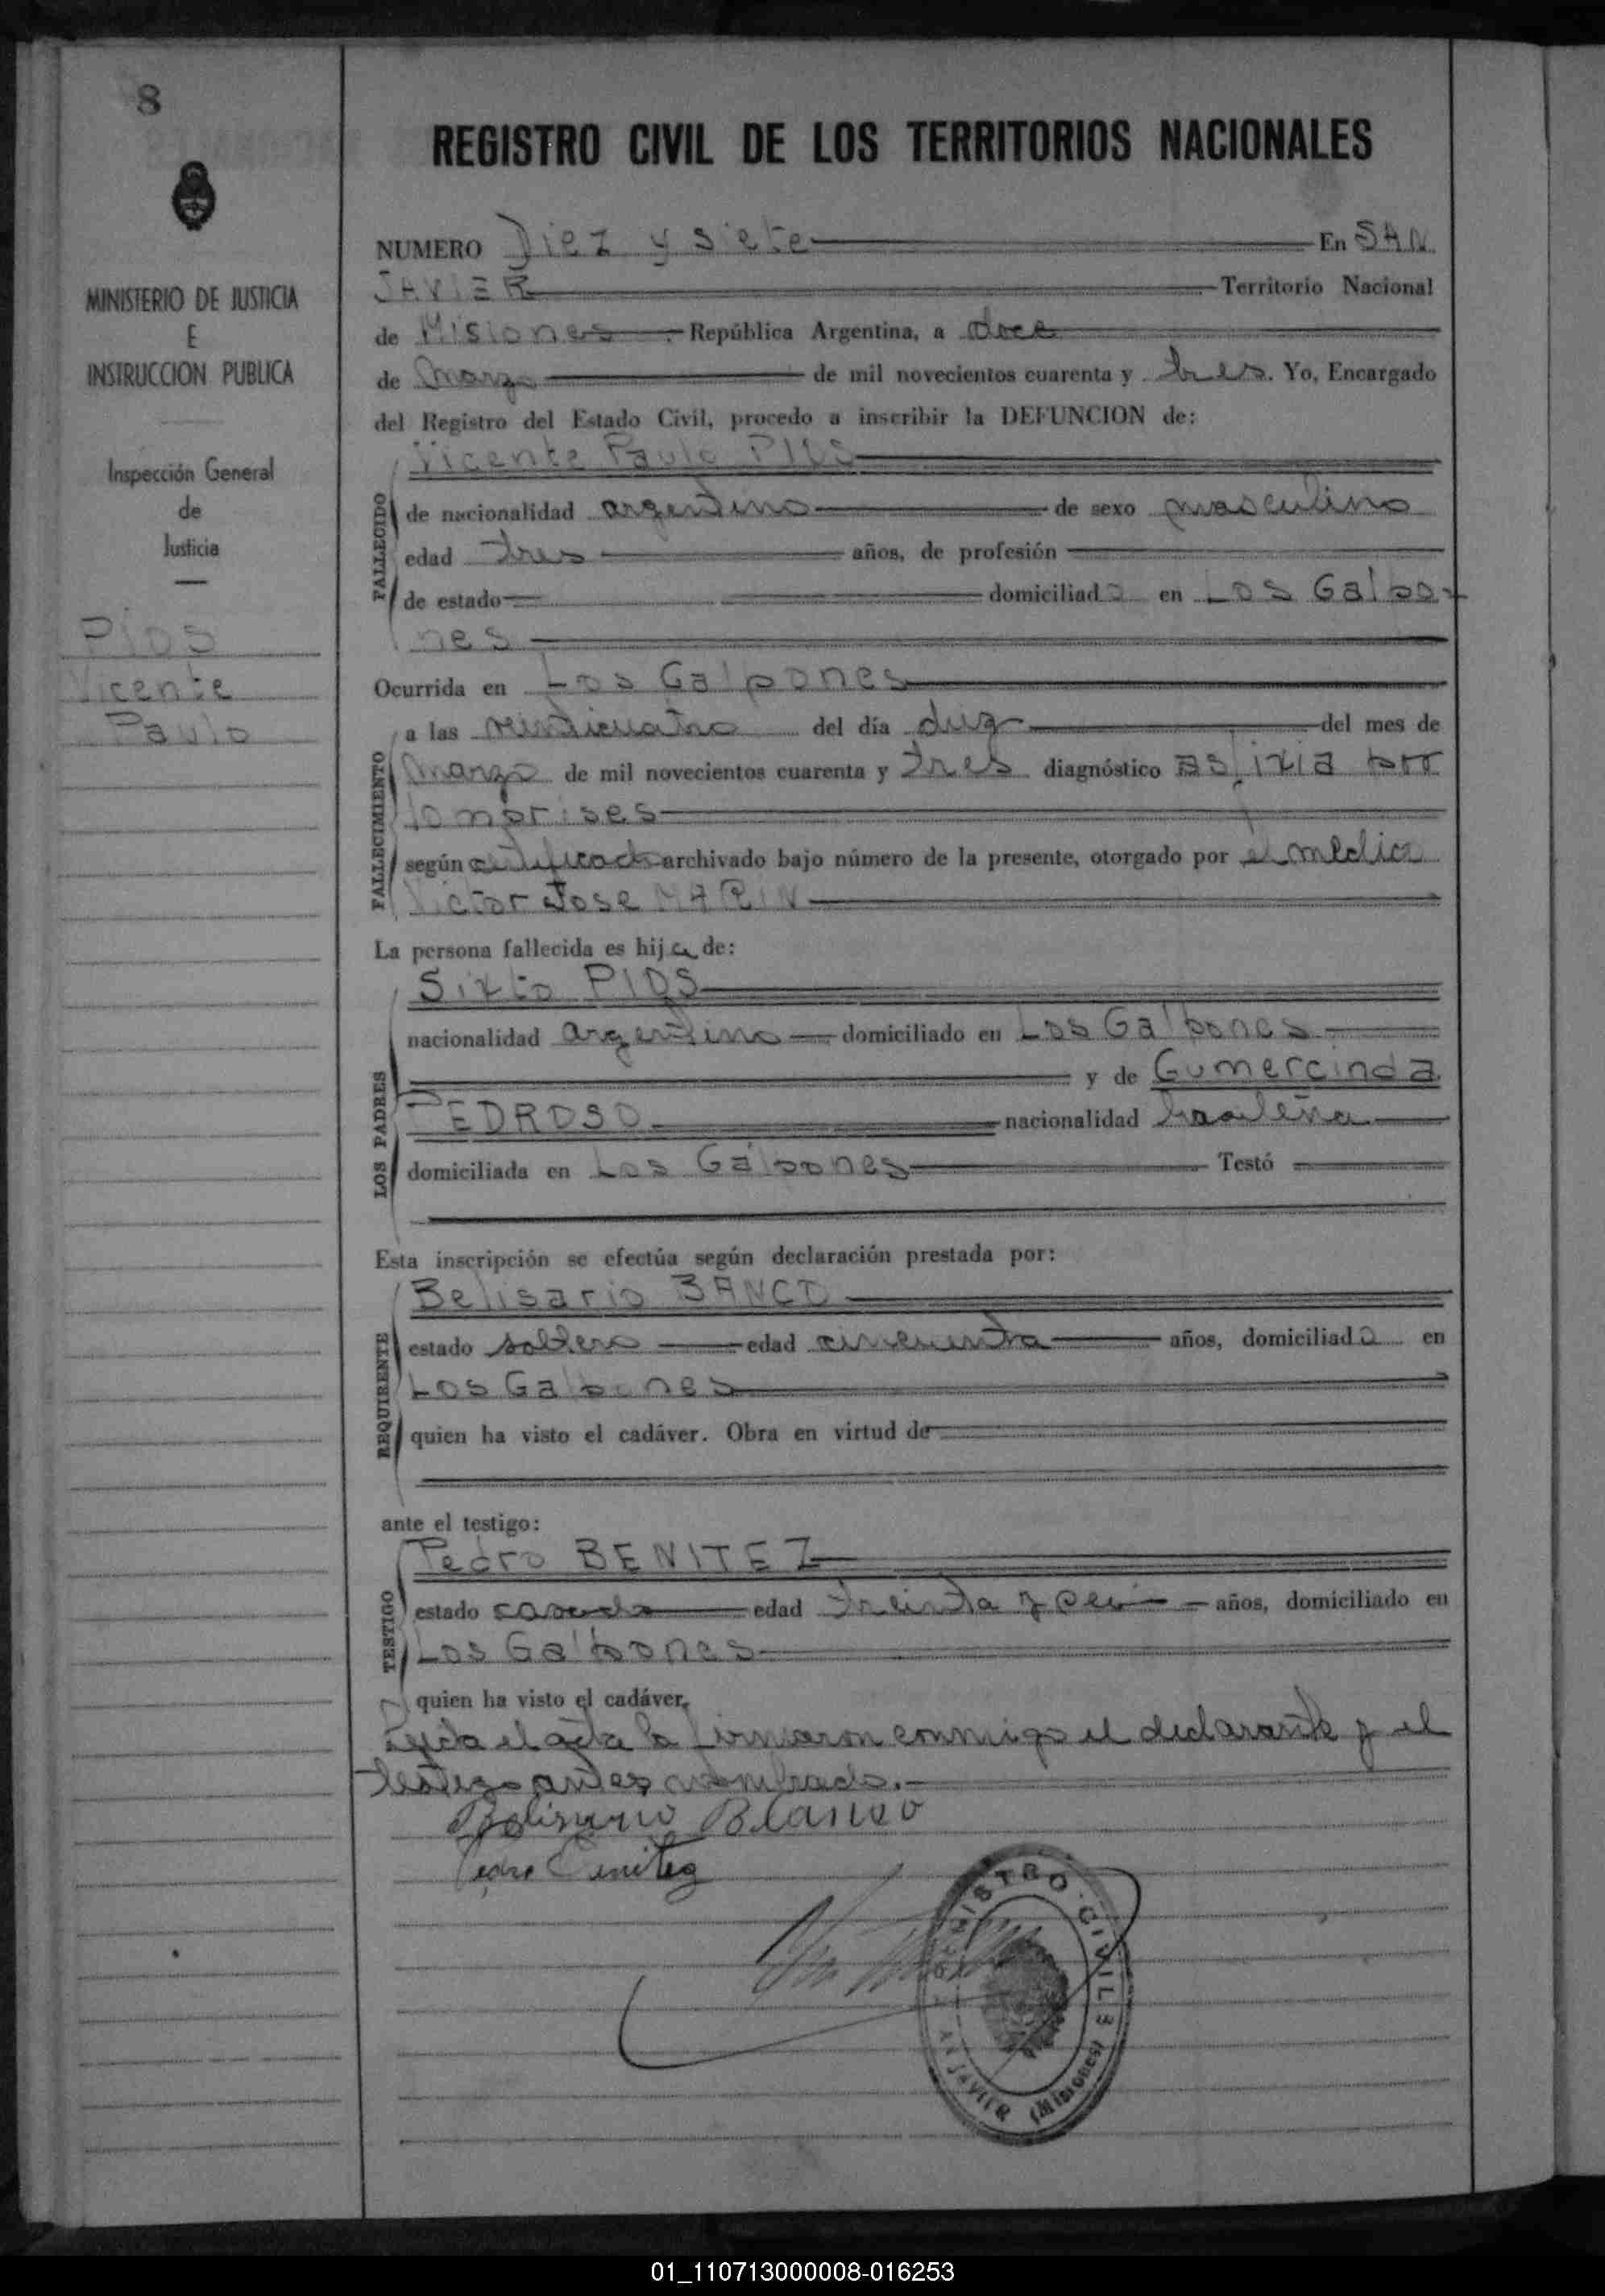 8
MINISTERIO DE JUSTICIA
E
INSTRUCCION PUBLICA
Inspección General
de
Justicia
PIOS
Vicente
Paulo
REGISTRO CIVIL DE LOS TERRITORIOS NACIONALES
NUMERO Diez y siete En SAN
JAVIER Territorio Nacional
de Misiones República Argentina, a doce
de Marzo de mil novecientos cuarenta y tres. Yo, Encargado
del Registro del Estado Civil, procedo a inscribir la DEFUNCION de:
Vicente Paulo PIOS
FALLECIDO
de nacionalidad argentino de sexo masculino
edad tres años, de profesión
de estado domiciliado en Los Galpo-
nes
Ocurrida en Los Galpones
FALLECIMIENTO
a las veinticuatro del día diez del mes de
Marzo de mil novecientos cuarenta y tres diagnóstico asfixia por
lombrises
según certificado archivado bajo número de la presente, otorgado por el medico
Victor Jose MARIN
La persona fallecida es hijo de:
LOS PADRES
Sixto PIOS
nacionalidad argentino domiciliado en Los Galpones
y de Gumercinda
PEDROSO nacionalidad brasileña
domiciliada en Los Galpones Testó
Esta inscripción se efectúa según declaración prestada por:
REQUIRENTE
Belisario BANCO
estado soltero edad cincuenta años, domiciliado en
Los Galpones
quien ha visto el cadáver. Obra en virtud de
ante el testigo:
TESTIGO
Pedro BENITEZ
estado casado edad treinta y años, domiciliado en
Los Galpones
quien ha visto el cadáver.
Leida el acta la firmaron conmigo el declarante y el
testigo antes nombrado.
Belisario Blanco
Pedro Benitez
REGISTRO CIVIL
SAN JAVIER (Misiones)
01_110713000008-016253